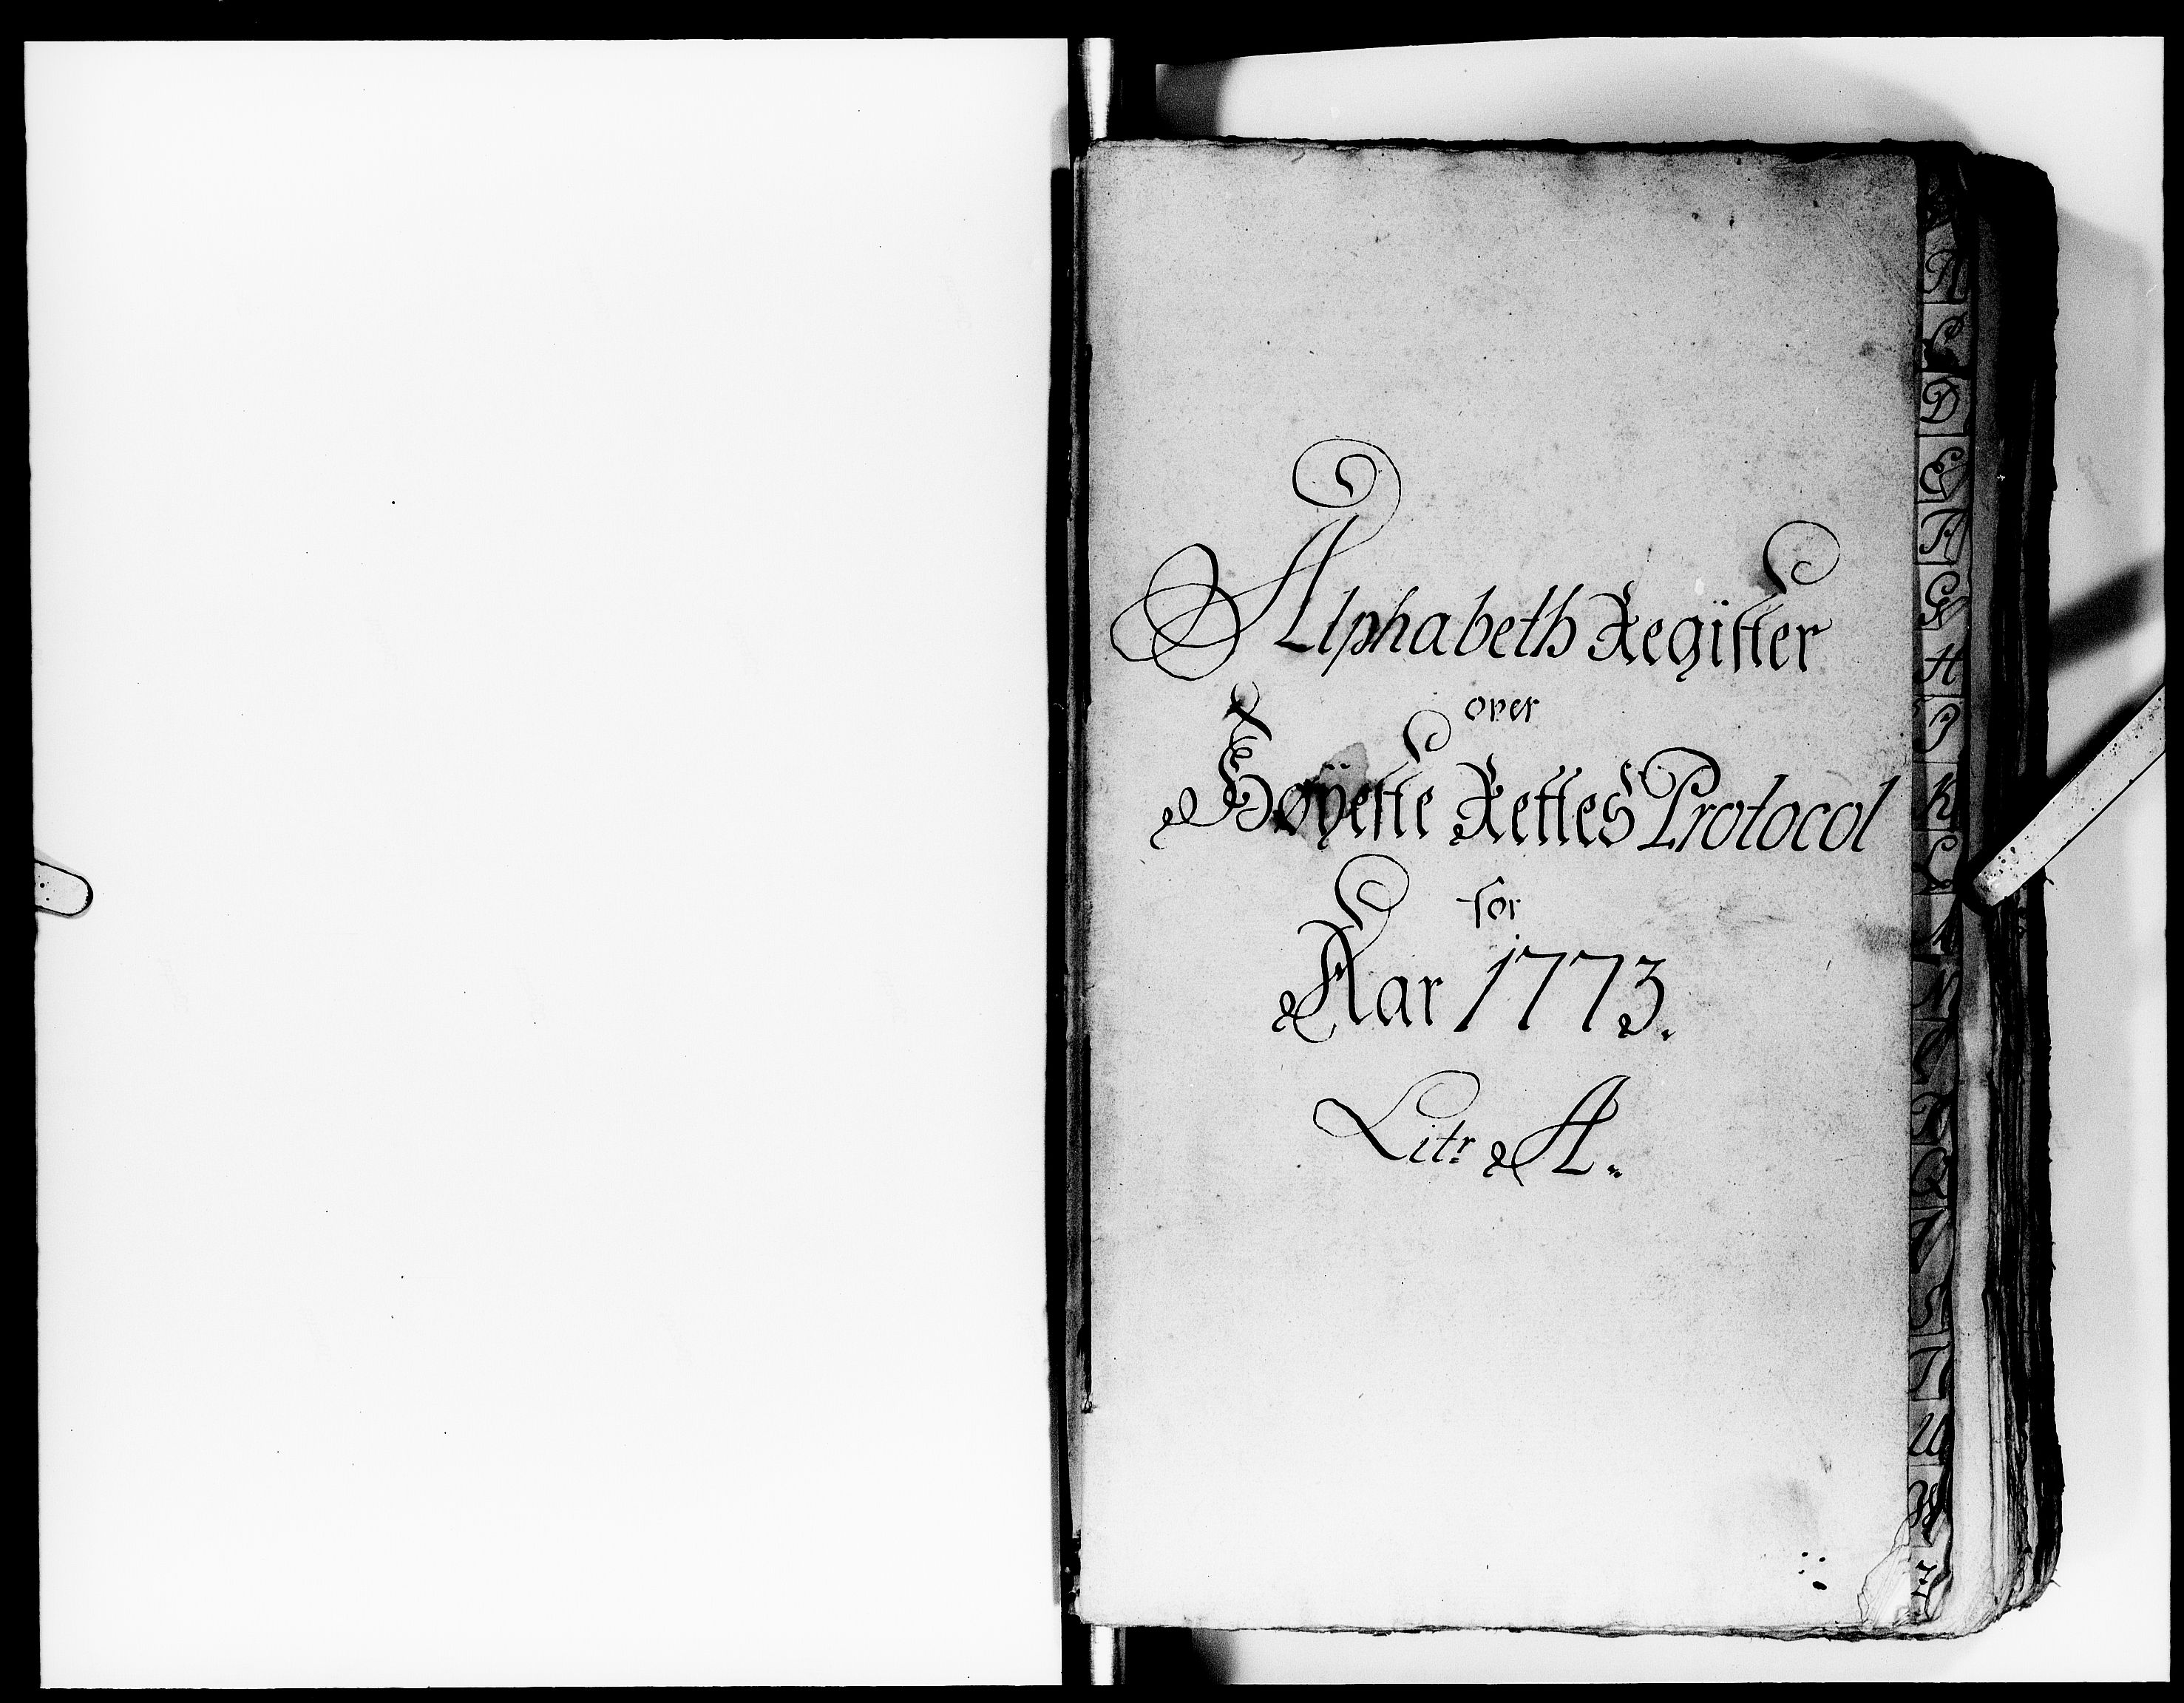 Alphabeth Register
over
Høÿeste Rettes Protocol
for
Aar 1773.
Litr. A.
A
B
C
D
E
F
G
H
I
K
L
M
N
O
P
Q
R
S
T
U
W